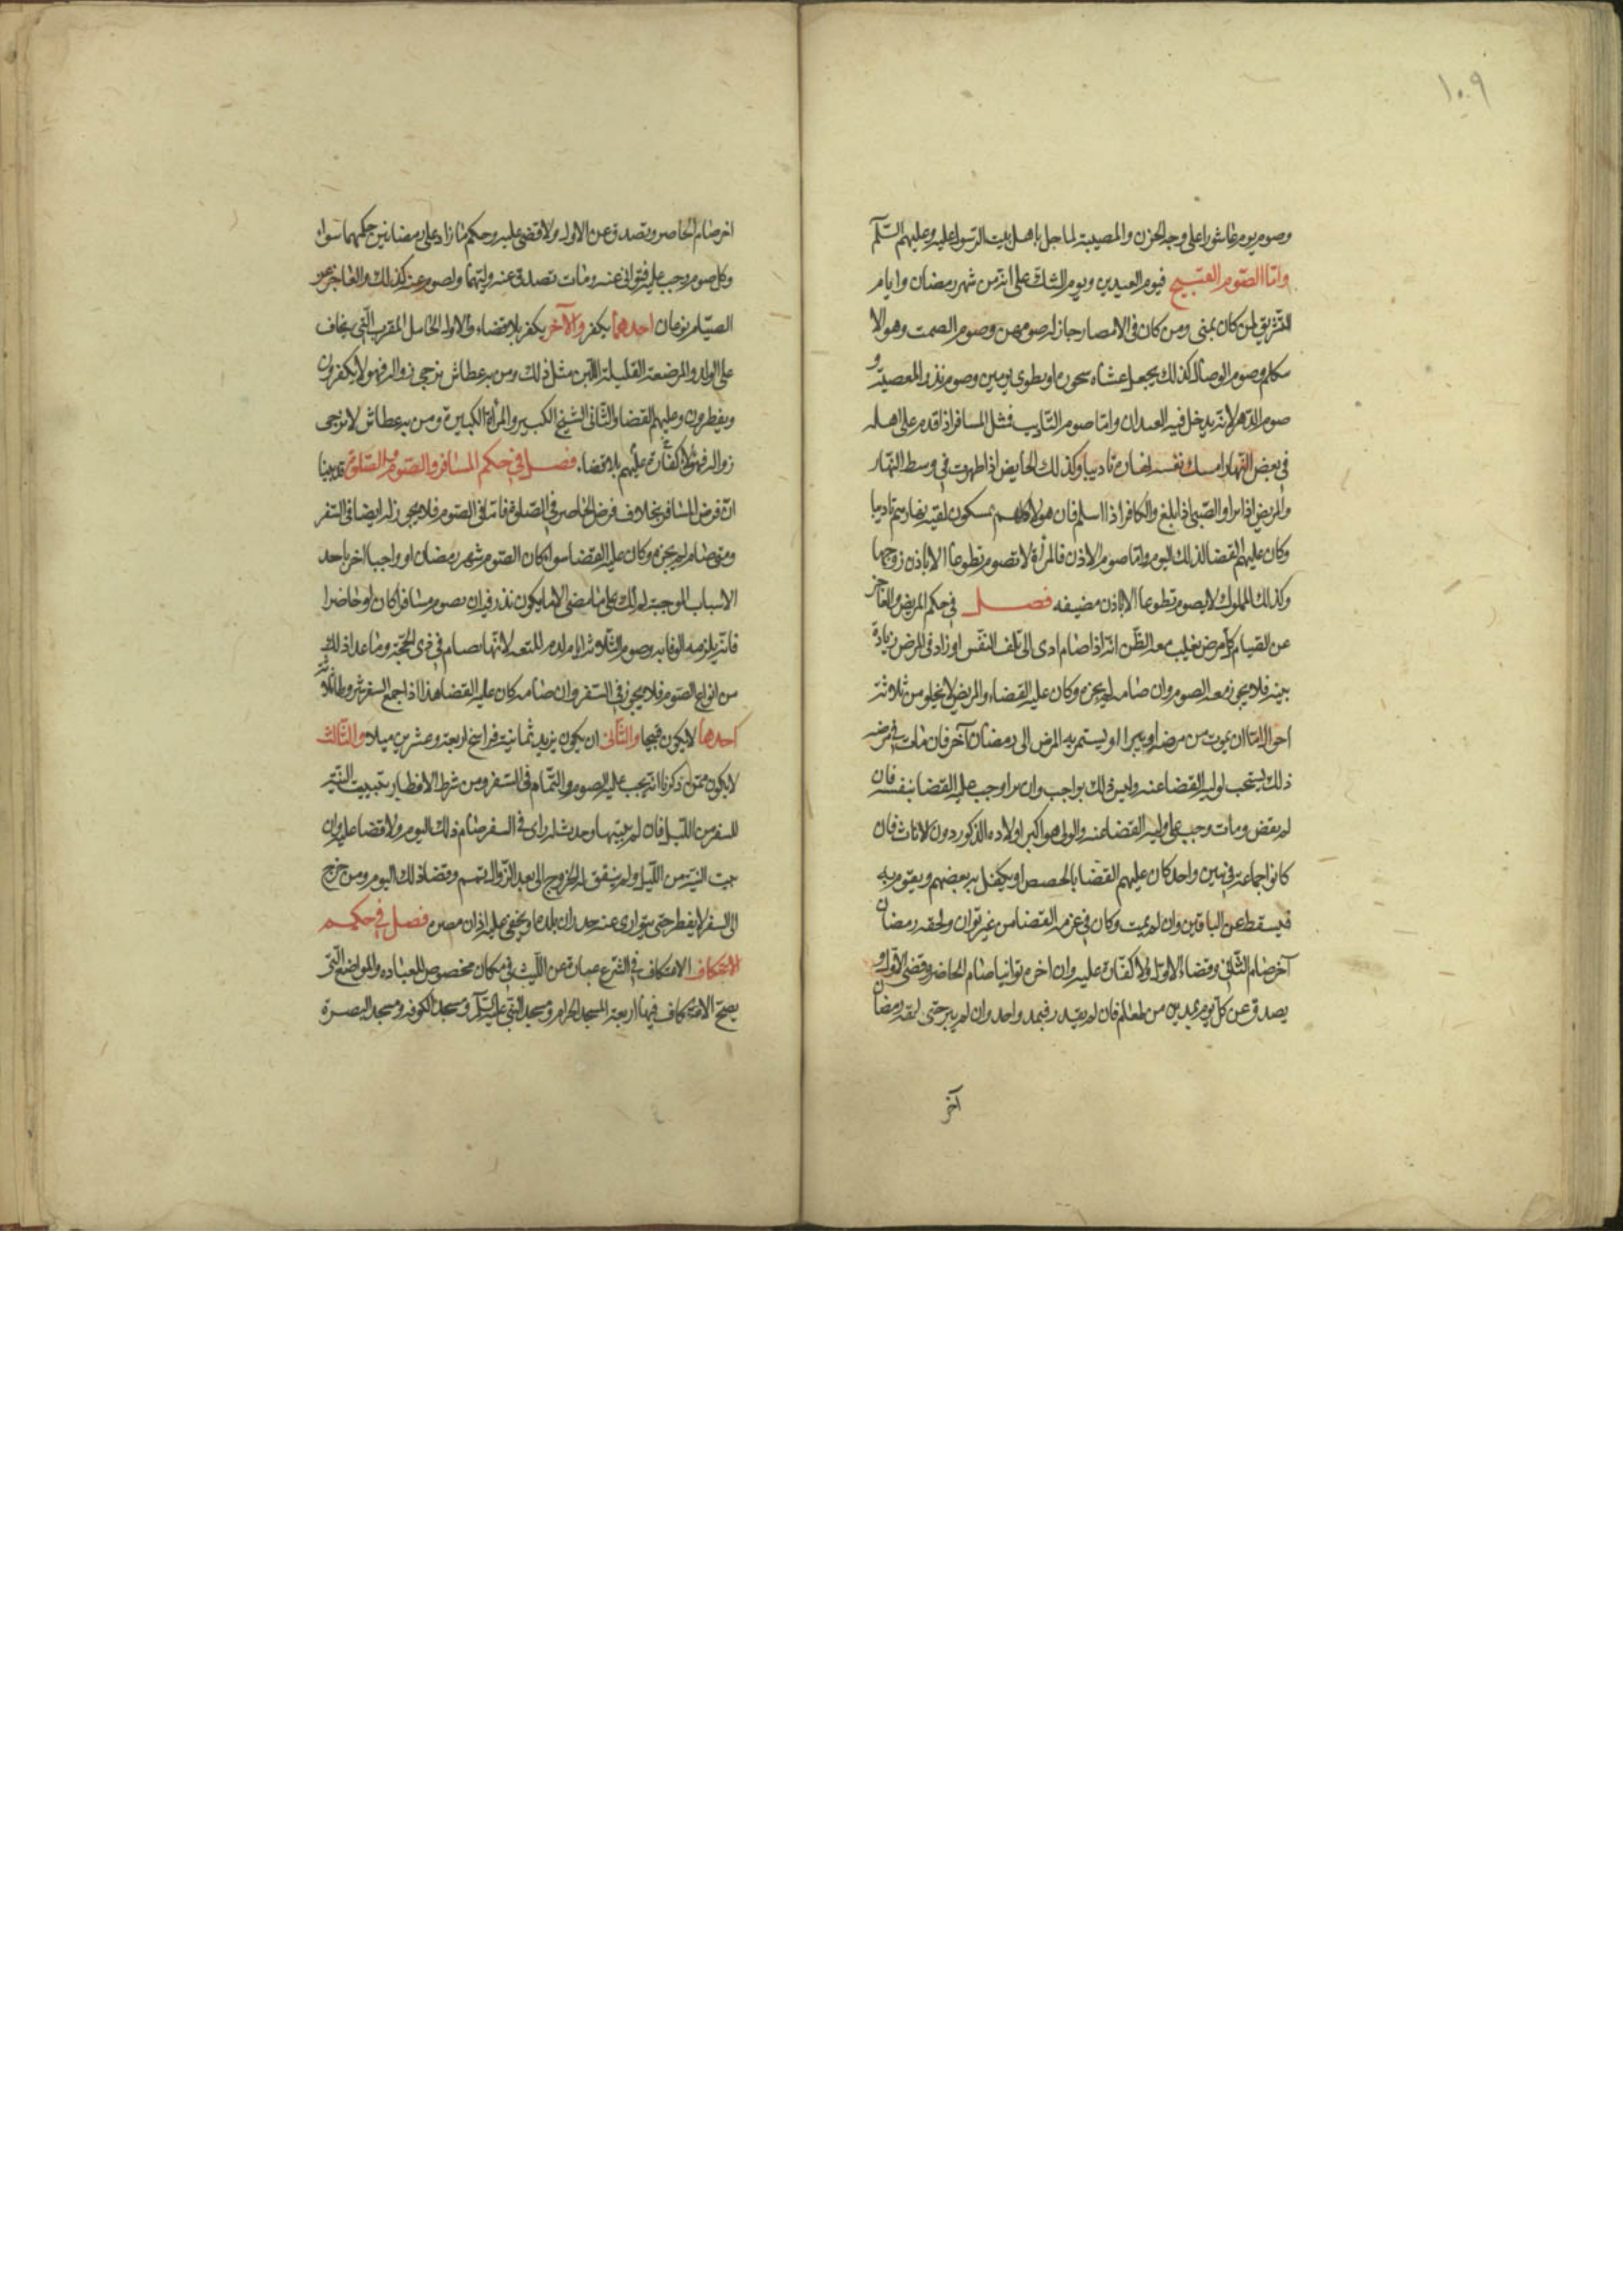 ١٠٩
وصوم يوم عاشورا على وجه الحزن والمصيبة لما حل باهل بيت الرسول عليه وعليهم السلم
وامّا الصّوم القبيح فيوم العيدين ويوم الشك على انه من شهر رمضان وايام
التشريق لمن كان بمنى ومن كان فى الامصار جاز له صومهن وصوم الصمت وهو الا
يتكلم وصوم الوصال كذلك يجعل عشاه سحوره او يطوى يومين وصوم نذر المعصية و
صوم الدهر لانه يدخل فيه العيدان وامّا صوم التاديب فمثل المسافر اذا قدم على اهله
فى بعض النهار امسك نفسه نهاره تاديبا وكذلك الحايض اذا طهرت فى وسط النهار
والمريض اذا برا او الصّبى اذا بلغ والكافر اذا اسلم فان هولاء كلهم يمسكون بقية نهارهم تاديبا
وكان عليهم القضا لذلك اليوم وامّا صوم الاذن فالمرأة لا تصوم تطوعا الا باذن زوجها
وكذلك المملوك لا يصوم تطوعا الا باذن مضيفه فصل فى حكم المريض والعاجز
عن الصيام كل مرض يغلب معه الظن انه اذا صام ادى الى تلف النفس او زاد فى المرض زيادة
بينة فلا يجوز معه الصوم وان صامه لم يجزه وكان عليه القضاء والمريض لا يخلو من ثلاثة
احوال امّا ان يموت من مرضه او يبرا او يستمر به المرض الى رمضان آخر فان مات فى مرضه
ذلك يستحب لوليه القضا عنه وليس ذلك بواجب وان برا وجب عليه القضا بنفسه فان
لم يقض ومات وجب على وليه القضا عنه والولى هو اكبر اولاده الذكور دون الاناث فان
كانوا جماعة فى سن واحد كان عليهم القضا بالحصص او يكفل به بعضهم ويقوم به
فيسقط عن الباقين وان لم يمت وكان فى عزمه القضا من غير توان ولحقه رمضان
آخر صام الثّانى وقضاء الاول ولا كفارة عليه وان اخره توانيا صام الحاضر وقضى الاول و
يصدق عن كل يوم بمدين من طعام فان لم يقدر فبمد واحد وان لم يبر حتى لحقه رمضان
آخر
اخر صام الحاضر وتصدق عن الاول ولا قضى عليه وحكم ما زاد على رمضانين حكمهما سواء
وكل صوم وجب عليه فتوانى عنه ومات تصدق عنه وليهما والصوم عنه كذلك والعاجز عن
الصيام نوعان احدهما يكفر والآخر يكفر بلا قضاء والاول الحامل المقرب التى يخاف
على الولد والمرضعة القليلة اللبن مثل ذلك ومن به عطاش يرجى زواله فهولا يكفرون
ويفطرون وعليهم القضا والثّانى الشيخ الكبير والمرأة الكبيرة ومن به عطاش لا يرجى
زواله فهولا كفارة عليهم بلا قضاء فصل فى حكم المسافر والصوم والصلوة قد بينا
ان فرض المسافر بخلاف فرض الحاضر فى الصلوة فاما فى الصوم فلا يجوز له ايضا فى السفر
ومتى صام لم يجزه وكان عليه القضا سوا كان الصوم شهر رمضان او واجبا اخر باحد
الاسباب الموجبة لذلك على ما مضى الا ما يكون نذر فيه ان يصوم مسافرا كان او حاضرا
فانه يلزمه الوفا به وصوم الثلاثة ايام لدم المتعه لانها تصام فى ذى الحجّة وما عدا ذلك
من انواع الصوم فلا يجوز فى السفر وان صامه كان عليه القضا هذا اذا جمع السفر شروطا ثلاثة
احدها لا يكون قبيحا والثّانى ان يكون بريد ثمانية فراسخ اربعة وعشرين ميلا والثالث
لا يكون ممن ذكرنا انه يجب عليه الصوم والتمام فى السفر ومن شرط الافطار تبييت النية
للسفر من الليل فان لم يبيتها وحدث له راى فى السفر صام ذلك اليوم ولا قضا عليه وان
بيت النية من الليل ولم يتفق له الخروج الى بعد الزوال تمم وقضا ذلك اليوم ومن خرج
الى السفر لا يفطر حتى يتوارى عنه جدران بلده او يخفى عليه اذان مصره فصل فى حكم
الاعتكاف الاعتكاف فى الشرع عبارة عن اللبث فى مكان مخصوص للعباده والمواضع التى
يصح الاعتكاف فيها اربعة المسجد الحرام ومسجد النبى عليه السلم ومسجد الكوفه ومسجد البصرة